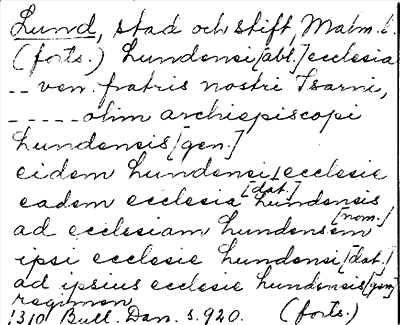 Lund, stad och stift, Malm. l.
(forts.) Lundensi [abl.] ecclesia
-- ven. fratris nostri Isarni,
----- olim archiepiscopi
Lundensis [gen.]
eidem Lundensi ecclesie [dat.]
eadem ecclesia Lundensis [nom.]
ad ecclesiam Lundensem
ipsi ecclesie Lundensi [dat.]
ad ipsius ecclesie Lundensis [gen.]
regimen
1310 Bull. Dan. s. 920. (forts.)